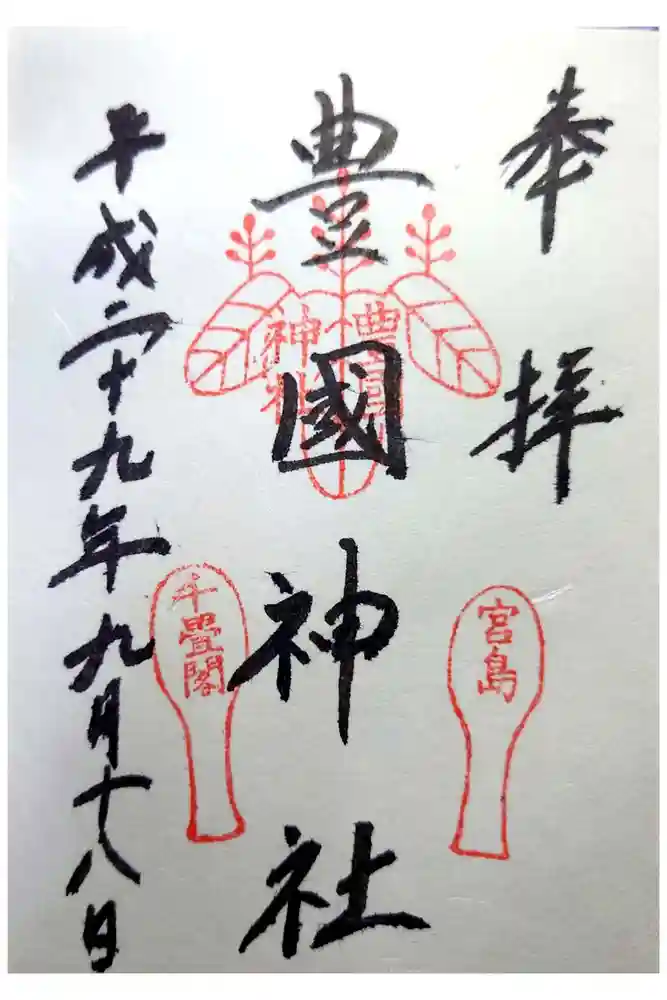 奉拝
豊國神社
平成二十九年九月十八日
豊國
神社
宮島
千畳閣